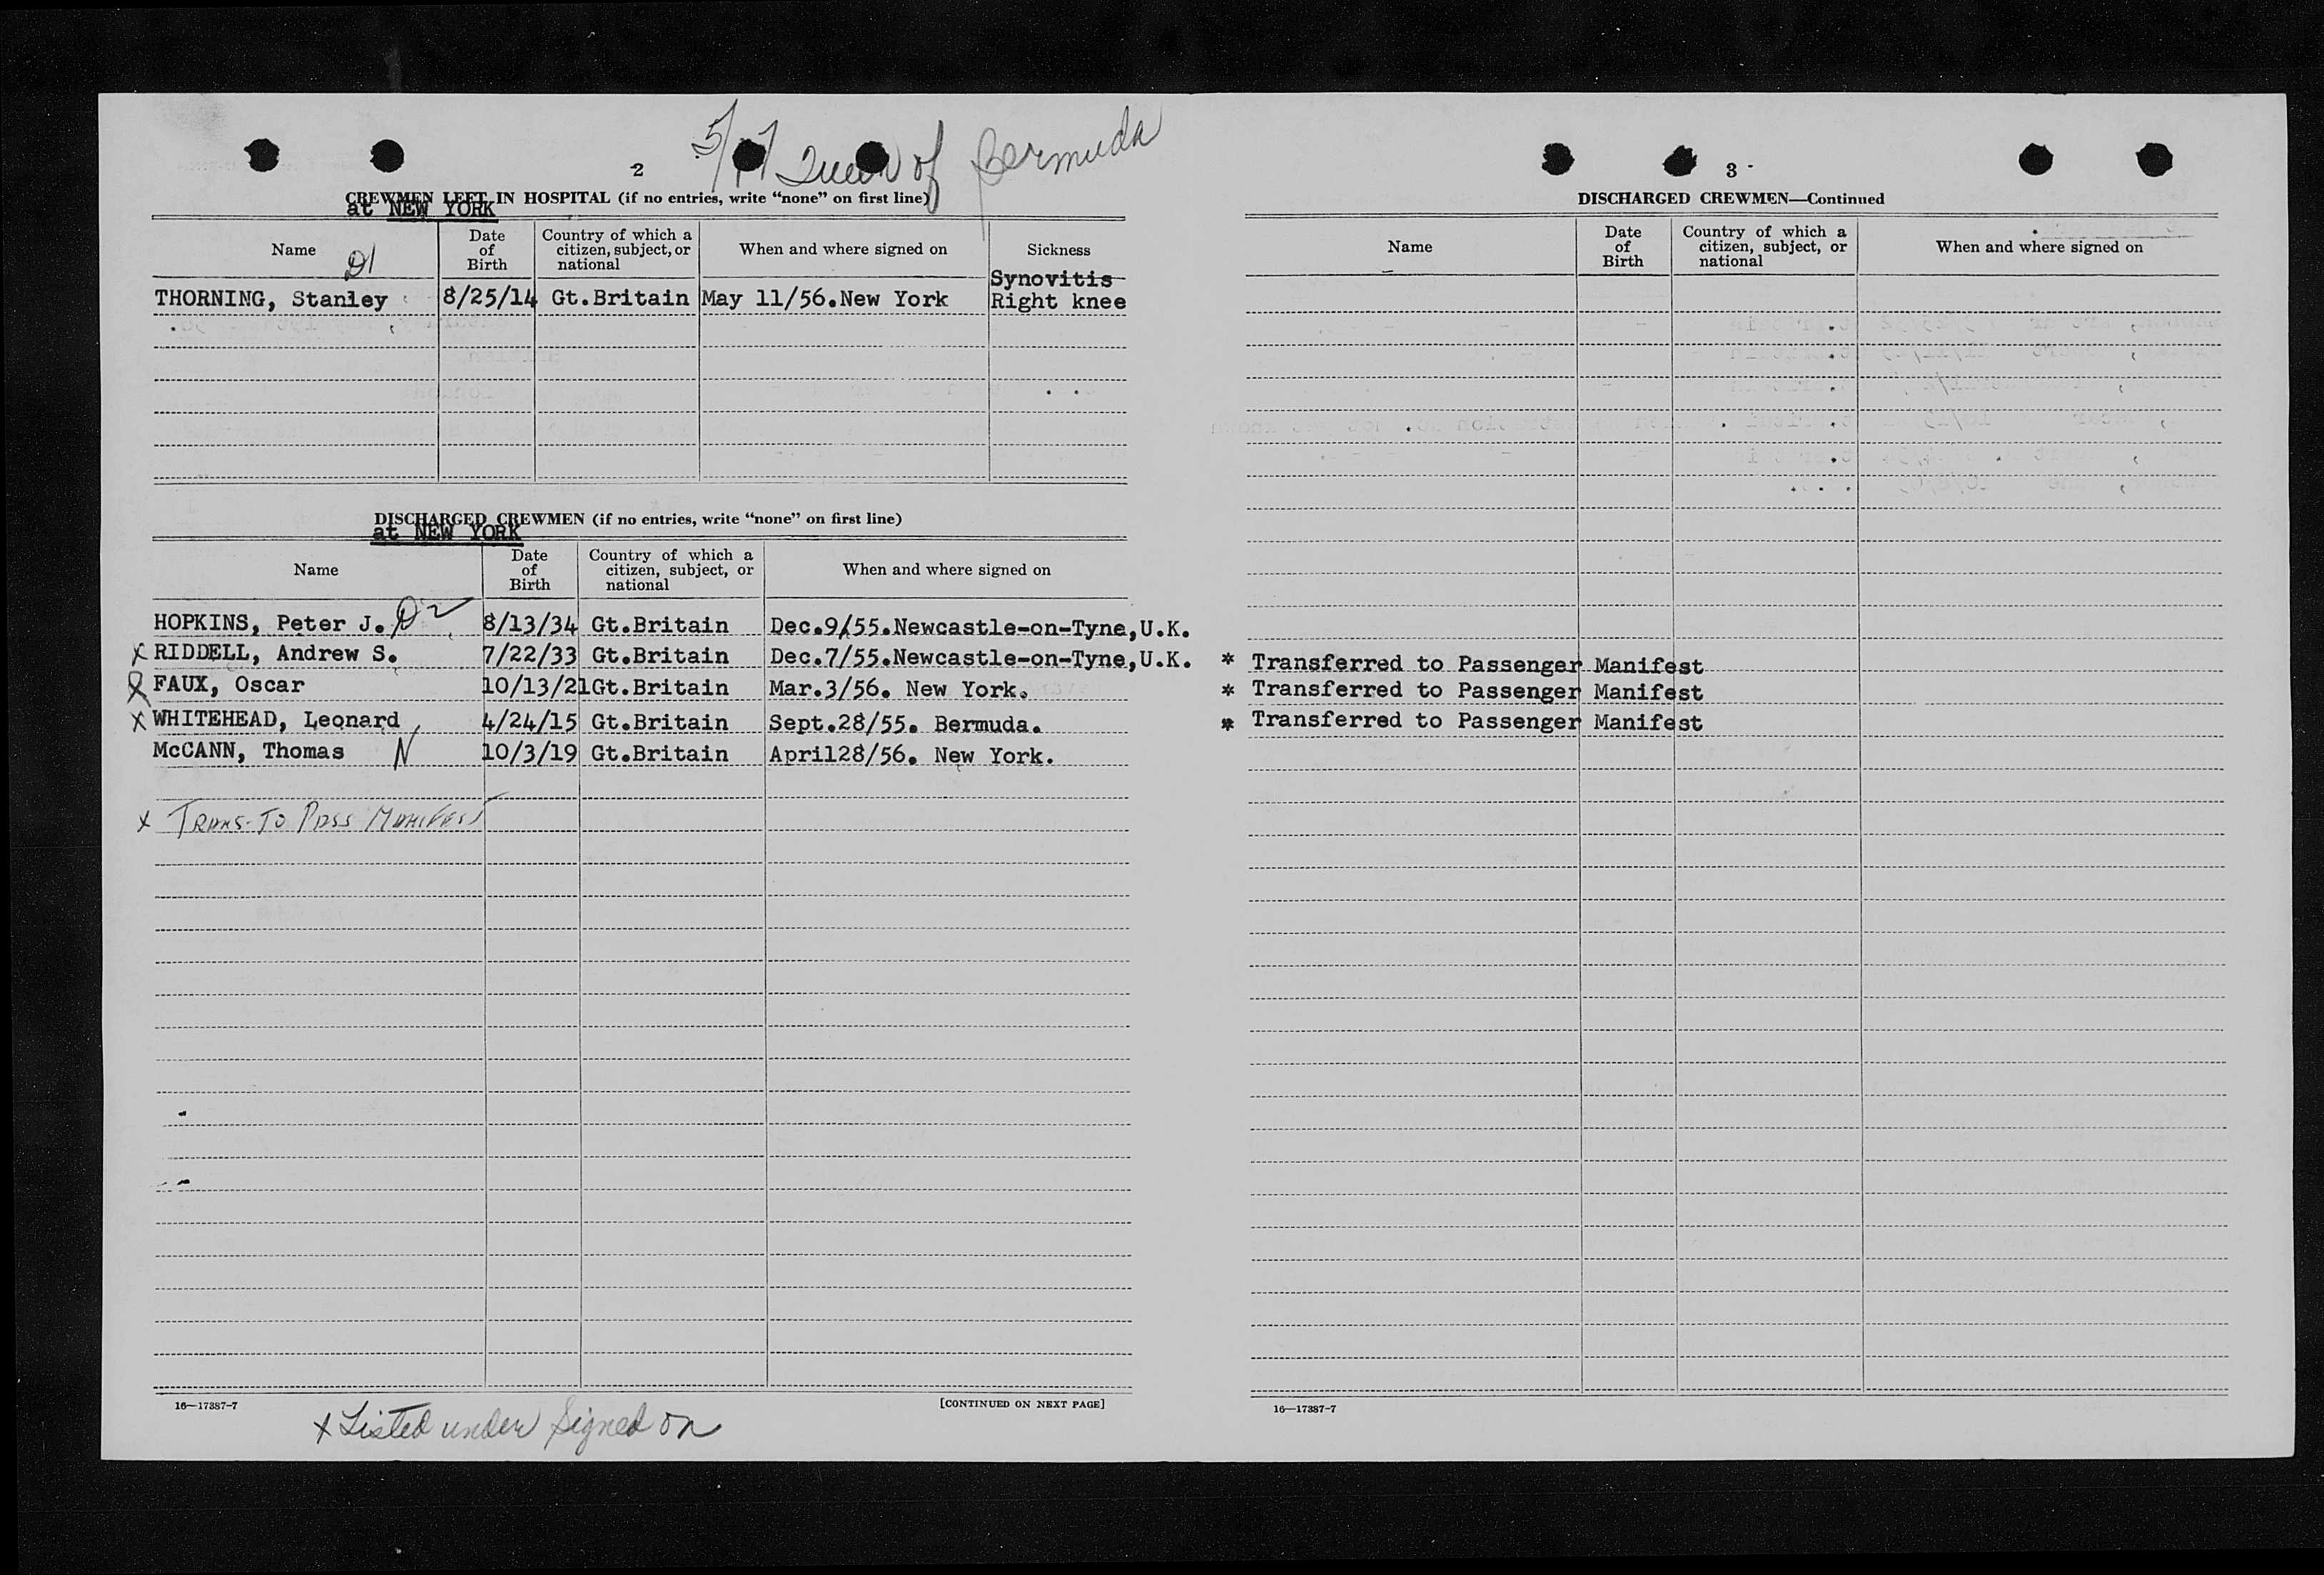 2
Queen of Bermuda
CREWMEN LEFT IN HOSPITAL (if no entries, write “none” on first line)
at NEW YORK
Name D1 Date of Birth Country of which a citizen, subject, or national When and where signed on Sickness
Synovitis
THORNING, Stanley 8/25/14 Gt.Britain May 11/56.New York Right knee
DISCHARGED CREWMEN (if no entries, write “none” on first line)
at NEW YORK
Name Date of Birth Country of which a citizen, subject, or national When and where signed on
HOPKINS, Peter J. D2 8/13/34 Gt.Britain Dec.9/55.Newcastle-on-Tyne,U.K.
x RIDDELL, Andrew S. 7/22/33 Gt.Britain Dec.7/55.Newcastle-on-Tyne,U.K.
FAUX, Oscar 10/13/21 Gt.Britain Mar.3/56. New York.
x WHITEHEAD, Leonard 4/24/15 Gt.Britain Sept.28/55. Bermuda.
McCANN, Thomas N 10/3/19 Gt.Britain April28/56. New York.
x TRANS-TO PASS MANIFEST
16—17387-7
[CONTINUED ON NEXT PAGE]
x Listed under signed on
3 -
DISCHARGED CREWMEN—Continued
Name Date of Birth Country of which a citizen, subject, or national When and where signed on
* Transferred to Passenger Manifest
* Transferred to Passenger Manifest
* Transferred to Passenger Manifest
16—17387-7